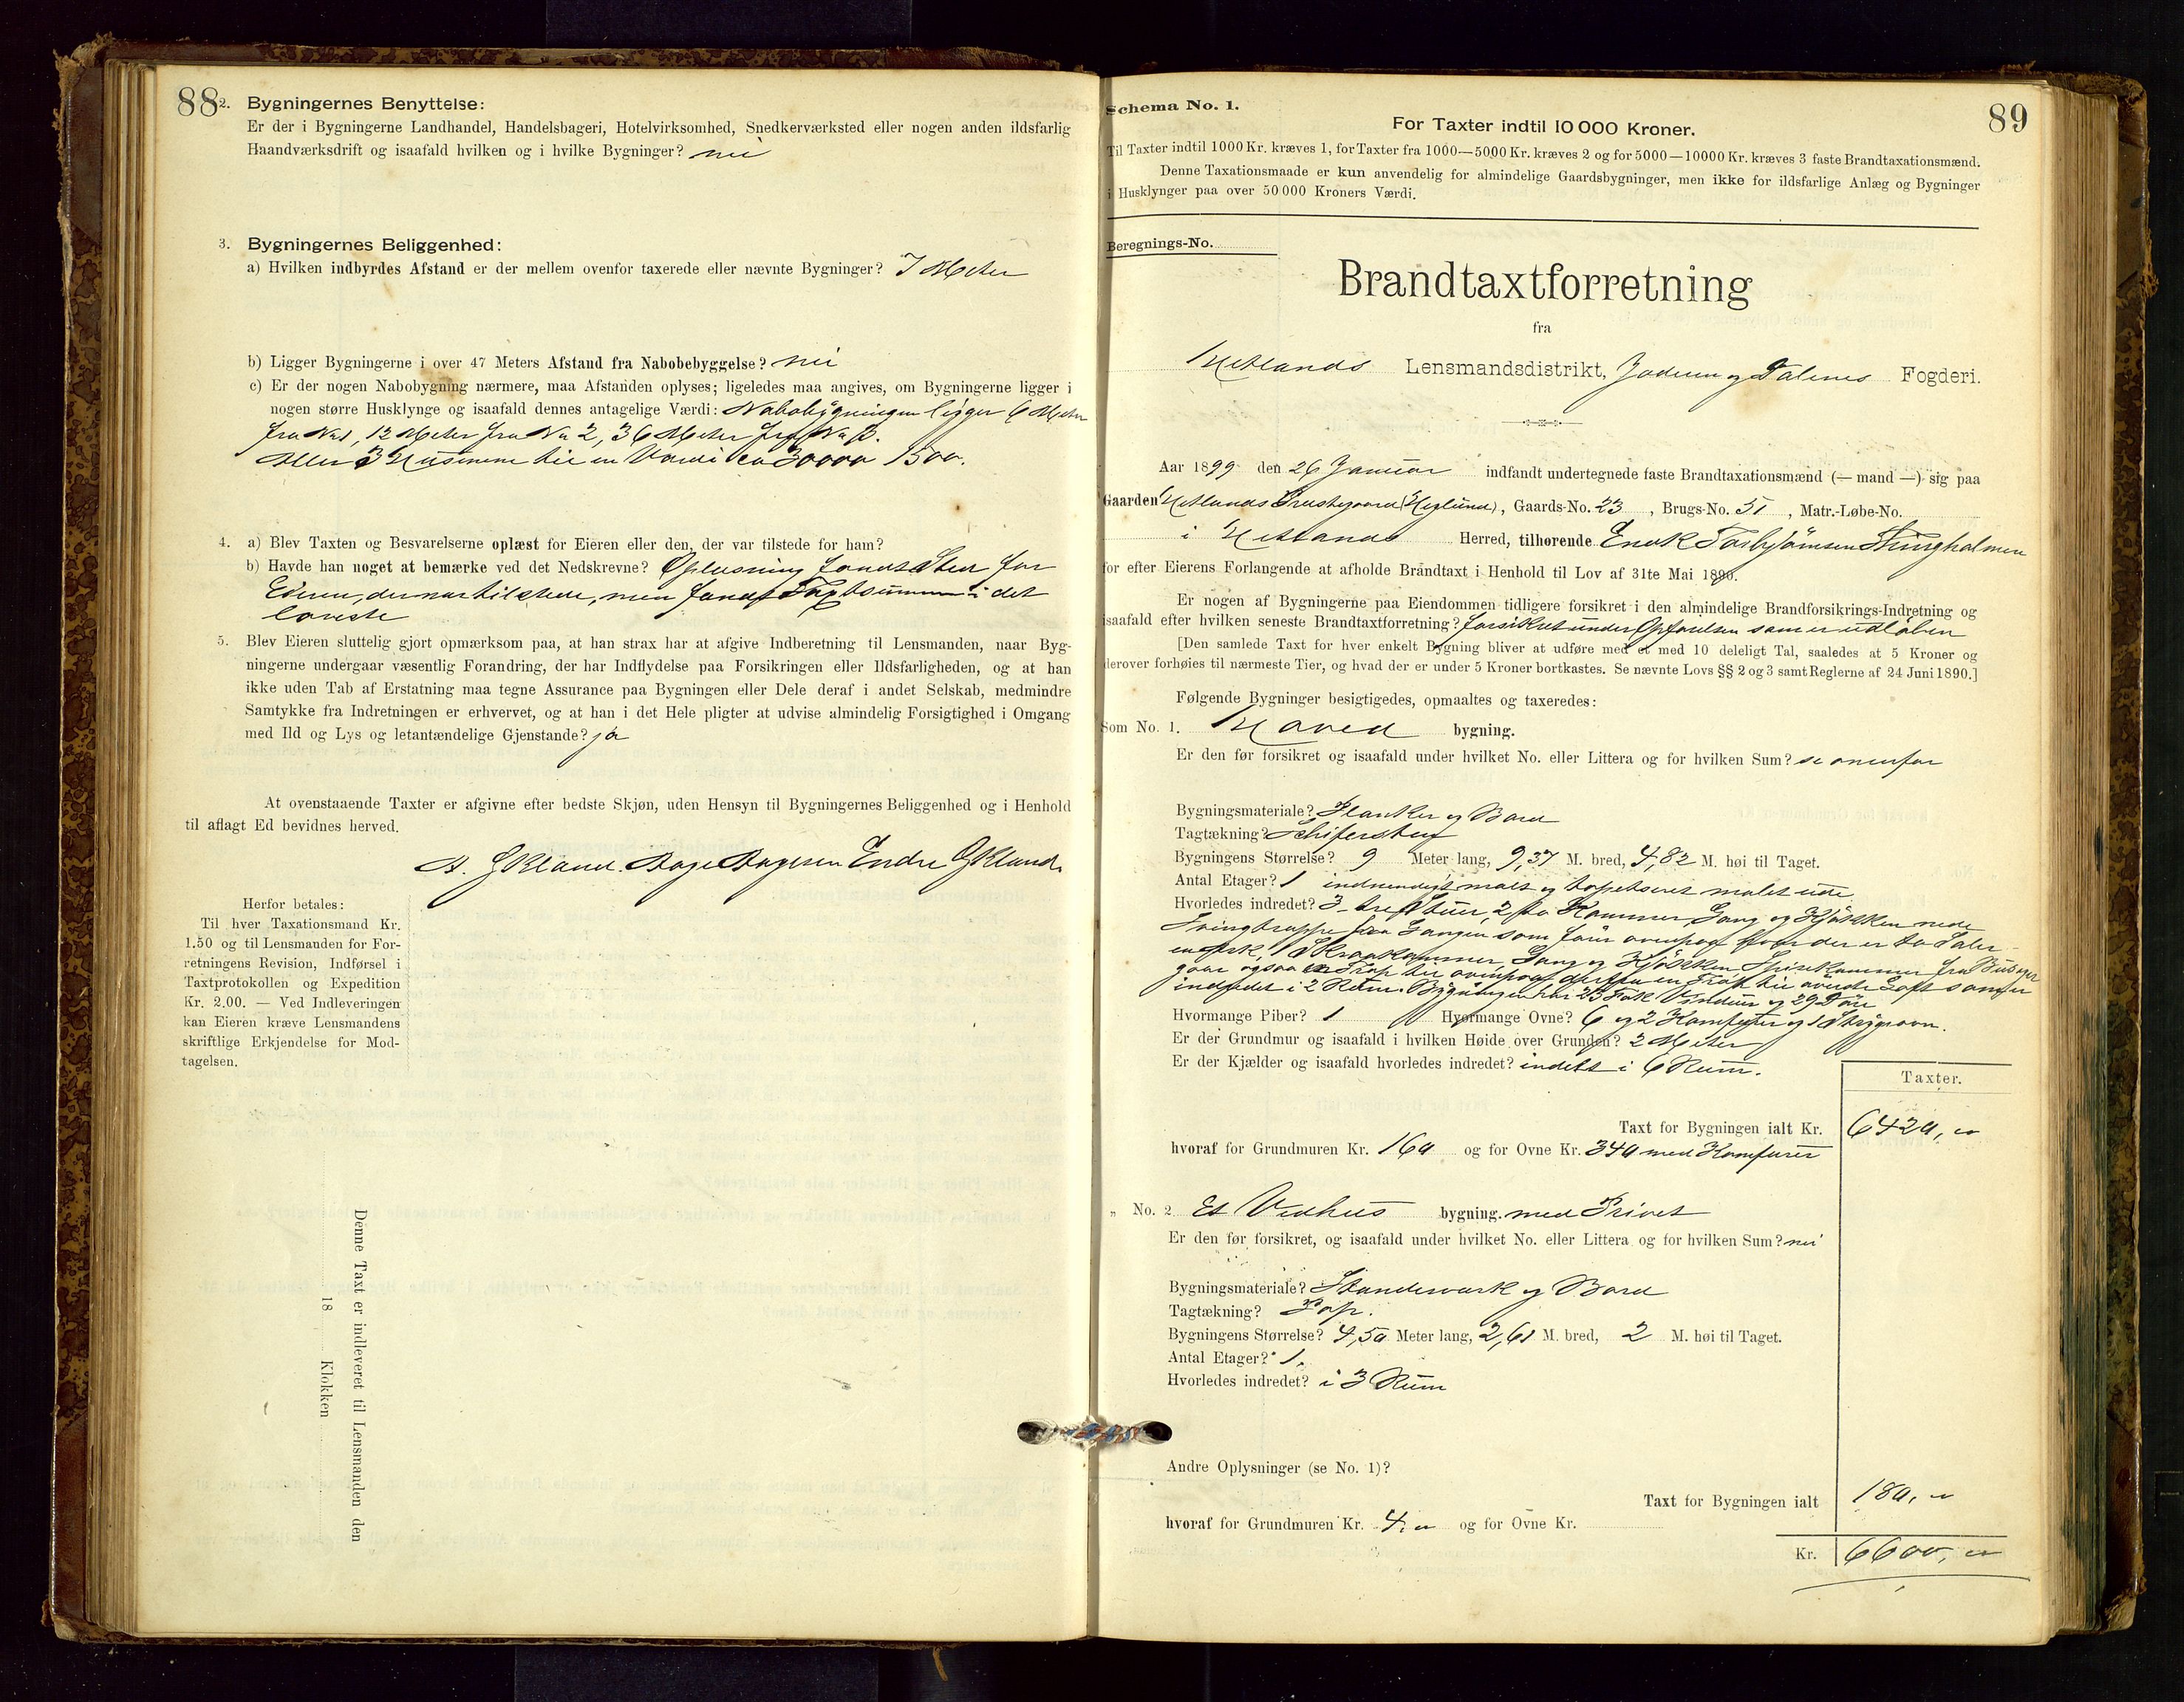 88
2. Bygningernes Benyttelse:
Er der i Bygningerne Landhandel, Handelsbageri, Hotelvirksomhed, Snedkerværksted eller nogen anden ildsfarlig
Haandværksdrift og isaafald hvilken og i hvilke Bygninger? nei
3. Bygningernes Beliggenhed:
a) Hvilken indbyrdes Afstand er der mellem ovenfor taxerede eller nævnte Bygninger? 7 Meter
b) Ligger Bygningerne i over 47 Meters Afstand fra Nabobebyggelse? nei
c) Er der nogen Nabobygning nærmere, maa Afstanden oplyses; ligeledes maa angives, om Bygningerne ligger i
nogen større Husklynge og isaafald dennes antagelige Værdi: Nabobygningen ligger 6 Meter
fra No 1, 12 Meter fra No 2, 36 Meter fra No 3.
Alle 3 Husene til en Værdi ca 1500.
4. a) Blev Taxten og Besvarelserne oplæst for Eieren eller den, der var tilstede for ham?
b) Havde han noget at bemærke ved det Nedskrevne? Oplæsning fandt Sted for
Eieren, der var tilstede, men fandt Taxtsummen i det
laveste
5. Blev Eieren sluttelig gjort opmærksom paa, at han strax har at afgive Indberetning til Lensmanden, naar Byg-
ningerne undergaar væsentlig Forandring, der har Indflydelse paa Forsikringen eller Ildsfarligheden, og at han
ikke uden Tab af Erstatning maa tegne Assurance paa Bygningen eller Dele deraf i andet Selskab, medmindre
Samtykke fra Indretningen er erhvervet, og at han i det Hele pligter at udvise almindelig Forsigtighed i Omgang
med Ild og Lys og letantændelige Gjenstande? ja
At ovenstaaende Taxter er afgivne efter bedste Skjøn, uden Hensyn til Bygningernes Beliggenhed og i Henhold
til aflagt Ed bevidnes herved.
Aage Aagesen Endre
Herfor betales:
Til hver Taxationsmand Kr.
1.50 og til Lensmanden for For-
retningens Revision, Indførsel i
Taxtprotokollen og Expedition
Kr. 2.00. — Ved Indleveringen
kan Eieren kræve Lensmandens
skriftlige Erkjendelse for Mod-
tagelsen.
Denne Taxt er indleveret til Lensmanden den
18 Klokken
89
Schema No. 1.
For Taxter indtil 10 000 Kroner.
Til Taxter indtil 1000 Kr. kræves 1, for Taxter fra 1000—5000 Kr. kræves 2 og for 5000—10000 Kr. kræves 3 faste Brandtaxationsmænd.
Denne Taxationsmaade er kun anvendelig for almindelige Gaardsbygninger, men ikke for ildsfarlige Anlæg og Bygninger
i Husklynger paa over 50 000 Kroners Værdi.
Beregnings-No.
Brandtaxtforretning
fra
Hetlands Lensmandsdistrikt, Jæderen og Dalenes Fogderi.
Aar 1899 den 26 Januar indfandt undertegnede faste Brandtaxationsmænd (— mand —) sig paa
Gaarden Hetlands Prestegaard, Gaards-No. 23, Brugs-No. 51, Matr.-Løbe-No.
i Hetlands Herred, tilhørende Enok Torbjørnsen
for efter Eierens Forlangende at afholde Brandtaxt i Henhold til Lov af 31te Mai 1890.
Er nogen af Bygningerne paa Eiendommen tidligere forsikret i den almindelige Brandforsikrings-Indretning og
isaafald efter hvilken seneste Brandtaxtforretning? forsikret under Opførelsen som er udløben
[Den samlede Taxt for hver enkelt Bygning bliver at udføre med et med 10 deleligt Tal, saaledes at 5 Kroner og
derover forhøies til nærmeste Tier, og hvad der er under 5 Kroner bortkastes. Se nævnte Lovs §§ 2 og 3 samt Reglerne af 24 Juni 1890.]
Følgende Bygninger besigtigedes, opmaaltes og taxeredes:
Som No. 1. Hoved bygning.
Er den før forsikret og isaafald under hvilket No. eller Littera og for hvilken Sum? se ovenfor
Bygningsmateriale? Planker og Bord
Tagtækning? Skifersten
Bygningens Størrelse? 9 Meter lang, 9,37 M. bred, 4,82 M. høi til Taget.
Antal Etager? 1 indvendigt malt og tapetseret malet ude
Hvorledes indredet? 3 tre Stuer, 2 to Kammer, Gang og Kjøkken nede
Svingtrappe fra Gangen som fører ovenpaa hvor der er to Saler
en Ark, 1 Skraakammer, Gang og Kjøkken, Spisekammer fra
gaar ogsaa en Trap til ovenpaa derfra en Trap til øverste Loft som er
indredet i 2 Rum. Bygningen har 23 Fag Vinduer og 29 Døre
Hvormange Piber? 1 Hvormange Ovne? 6 og 2 Komfyrer og 1 Strygeovn.
Er der Grundmur og isaafald i hvilken Høide over Grunden? 2 Meter
Er der Kjælder og isaafald hvorledes indredet? inddelt i 6 Rum.
Taxter.
Taxt for Bygningen ialt Kr. 6420,
hvoraf for Grundmuren Kr. 160 og for Ovne Kr. 340 med Komfurer
„ No. 2 Et Vedhus bygning. med Privet
Er den før forsikret, og isaafald under hvilket No. eller Littera og for hvilken Sum? nei
Bygningsmateriale? Standerværk og Bord
Tagtækning? Pap.
Bygningens Størrelse? 4,50 Meter lang, 2,61 M. bred, 2 M. høi til Taget.
Antal Etager? 1.
Hvorledes indredet? i 3 Rum
Andre Oplysninger (se No. 1)?
Taxt for Bygningen ialt 180,
hvoraf for Grundmuren Kr. 4, og for Ovne Kr.
Kr. 6600,